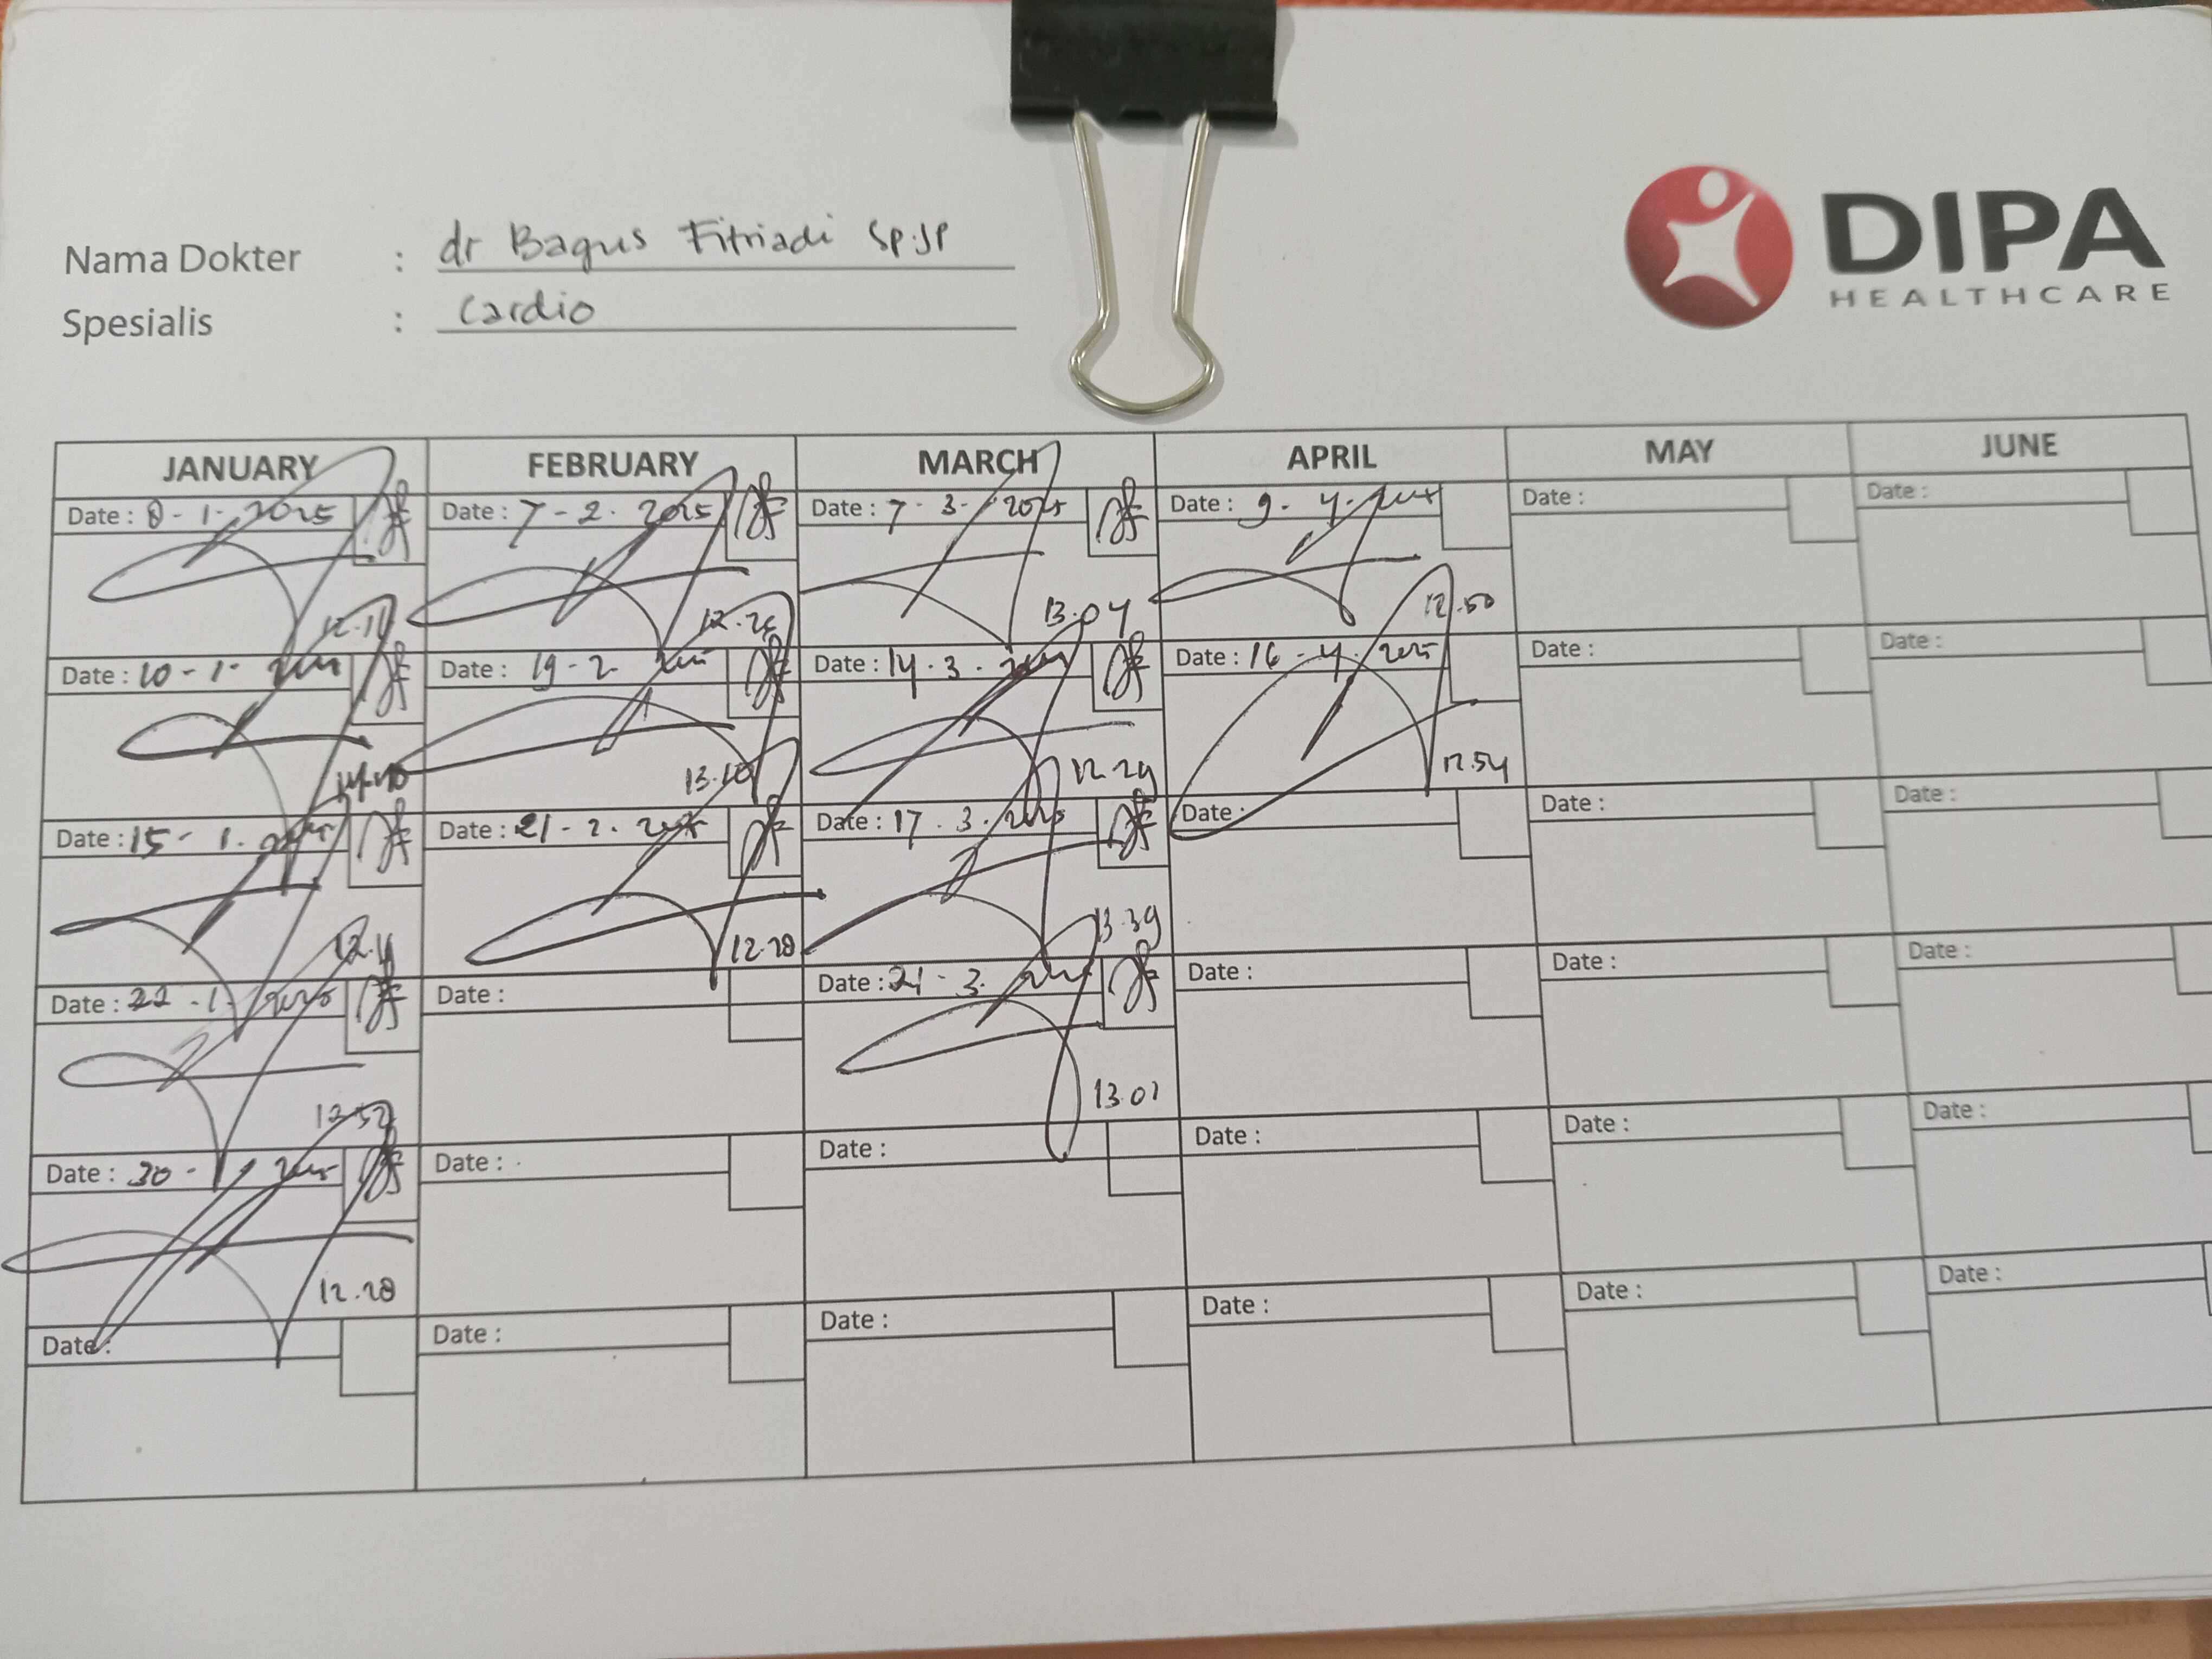 DIPA
HEALTHCARE
Nama Dokter : dr Bagus Fitriadi Sp.JP
Spesialis : Cardio
JANUARY FEBRUARY MARCH APRIL MAY JUNE
Date : 8 - 1 - 2025 Date : 7 - 2 . 2025 Date : 7 - 3 - 2025 Date : 9 - 4 - Date : Date :
13.04 12.50
Date : 10 - 1 - Date : 19 - 2 Date : 14 . 3 . Date : 16 - 4 . 2025 Date : Date :
12.29 12.54
Date : 15 - 1 . Date : 21 - 2 . Date : 17 . 3 . 2025 Date : Date : Date :
12.28 13.39
Date : 22 - 1 - 2025 Date : Date : 21 - 3 . Date : Date : Date :
12.52 13.01
Date : 30 - 1 Date : Date : Date : Date : Date :
12.28
Date : Date : Date : Date : Date : Date :